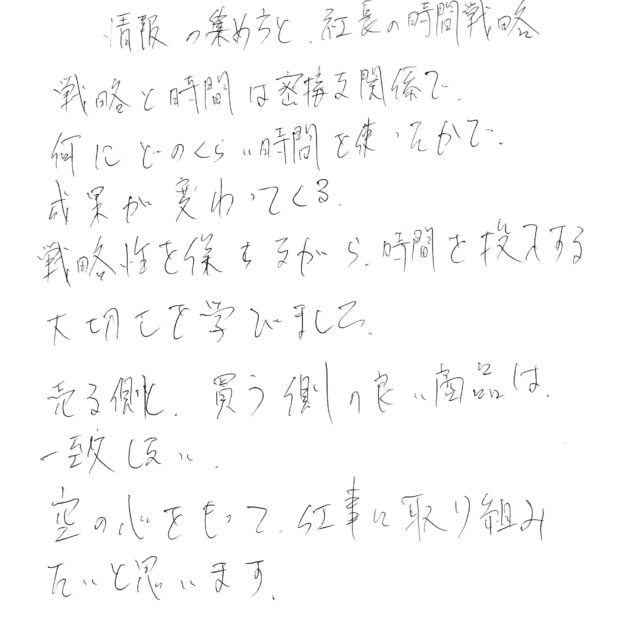 情報の集め方と、社長の時間戦略
戦略と時間は密接な関係で、
何にどのくらい時間を使ったかで、
成果が変わってくる。
戦略性を保ちながら、時間を投入する
大切さを学びました。
売る側と、買う側の良い商品は、
一致しない。
空の心をもって、仕事に取り組み
たいと思います。